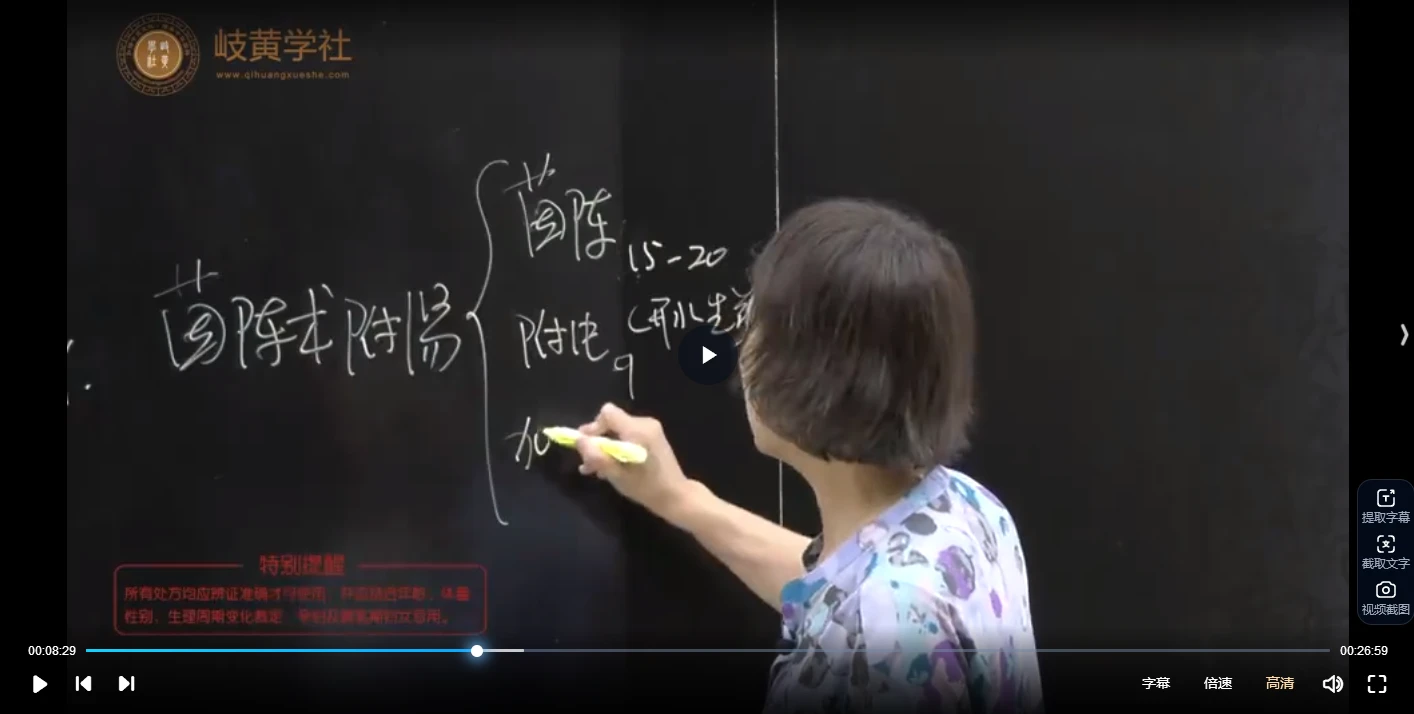 岐黄学社
www.qihuangxueshe.com
茵陈术附汤
茵陈
15-20
附片
9
(开水先煎
特别提醒
所有处方均应辨证准确才可使用，并应结合年龄、体重
性别、生理周期变化裁定，孕妇及哺乳期妇女忌用。
00:08:29
00:26:59
提取字幕
截取文字
视频截图
字幕
倍速
高清